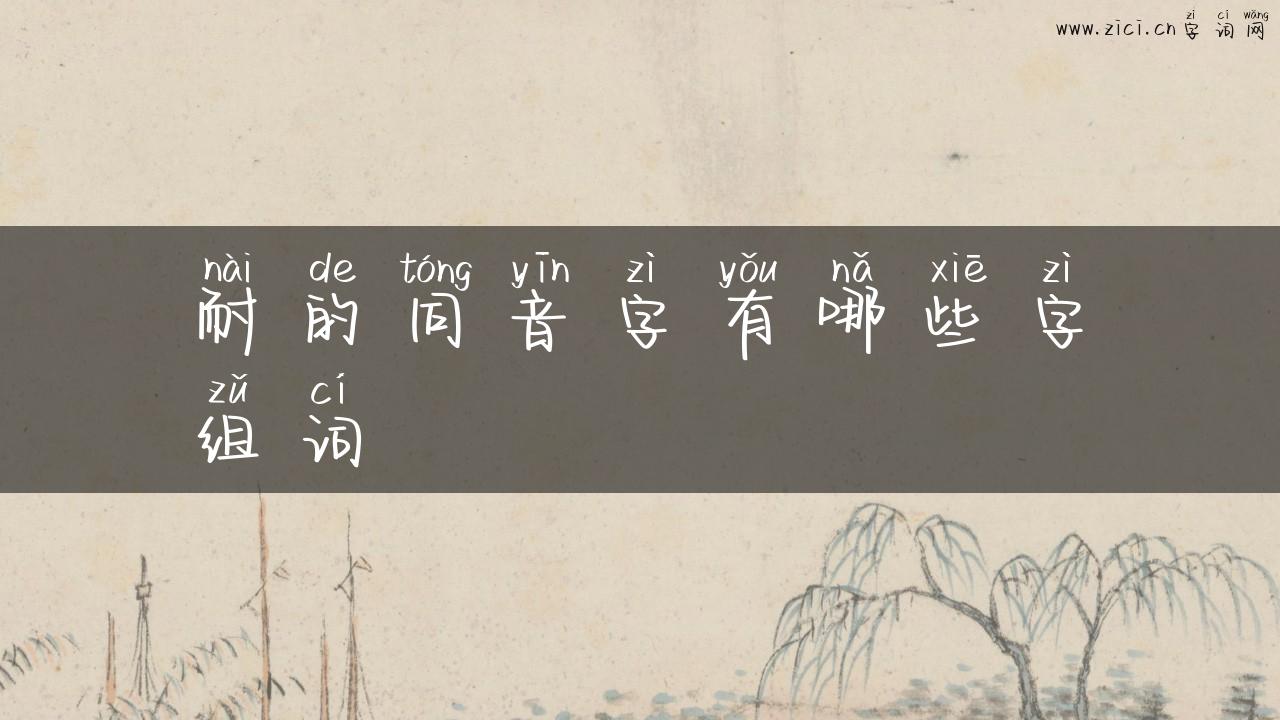 zì cí wǎng
www.zici.cn 字词网
nài de tóng yīn zì yǒu nǎ xiē zì
耐的同音字有哪些字
zǔ cí
组词